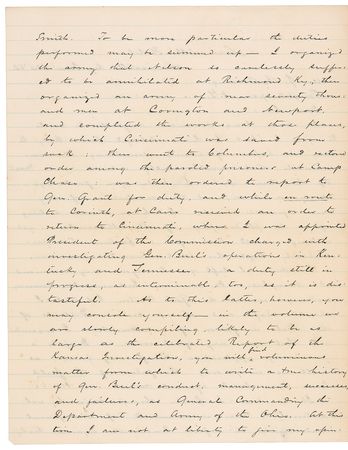 Smith. To be more particular the duties
performed may be summed up — I organized
the army that Nelson so carelessly suffer-
ed to be annihilated at Richmond Ky; then
organized an army of near seventy thous-
and men at Covington and Newport
and completed the works at those places,
by which Cincinnati was saved from
sack; then went to Columbus, and
order among the paroled prisoners at Camp
Chase; was then ordered to report to
Gen. Grant for duty, and while en route
to Corinth, at Cairo received an order to
return to Cincinnati, where I was appointed
President of the Commission charged with
investigating Gen. Buel's operations in Ken-
tucky and Tennessee: a duty still in
progress, as interminable too, as it is dis-
tasteful. As to this latter, however, you
may console yourself — in the volume we
are slowly compiling, likely to be as
large as the celebrated Report of the
Kansas Investigation, you will find voluminous
matter from which to write a true history
of Gen Buel's conduct, management, successes
and failures, as General Commanding the
Department and Army of the Ohio. At this
time I am not at liberty to give my opin-